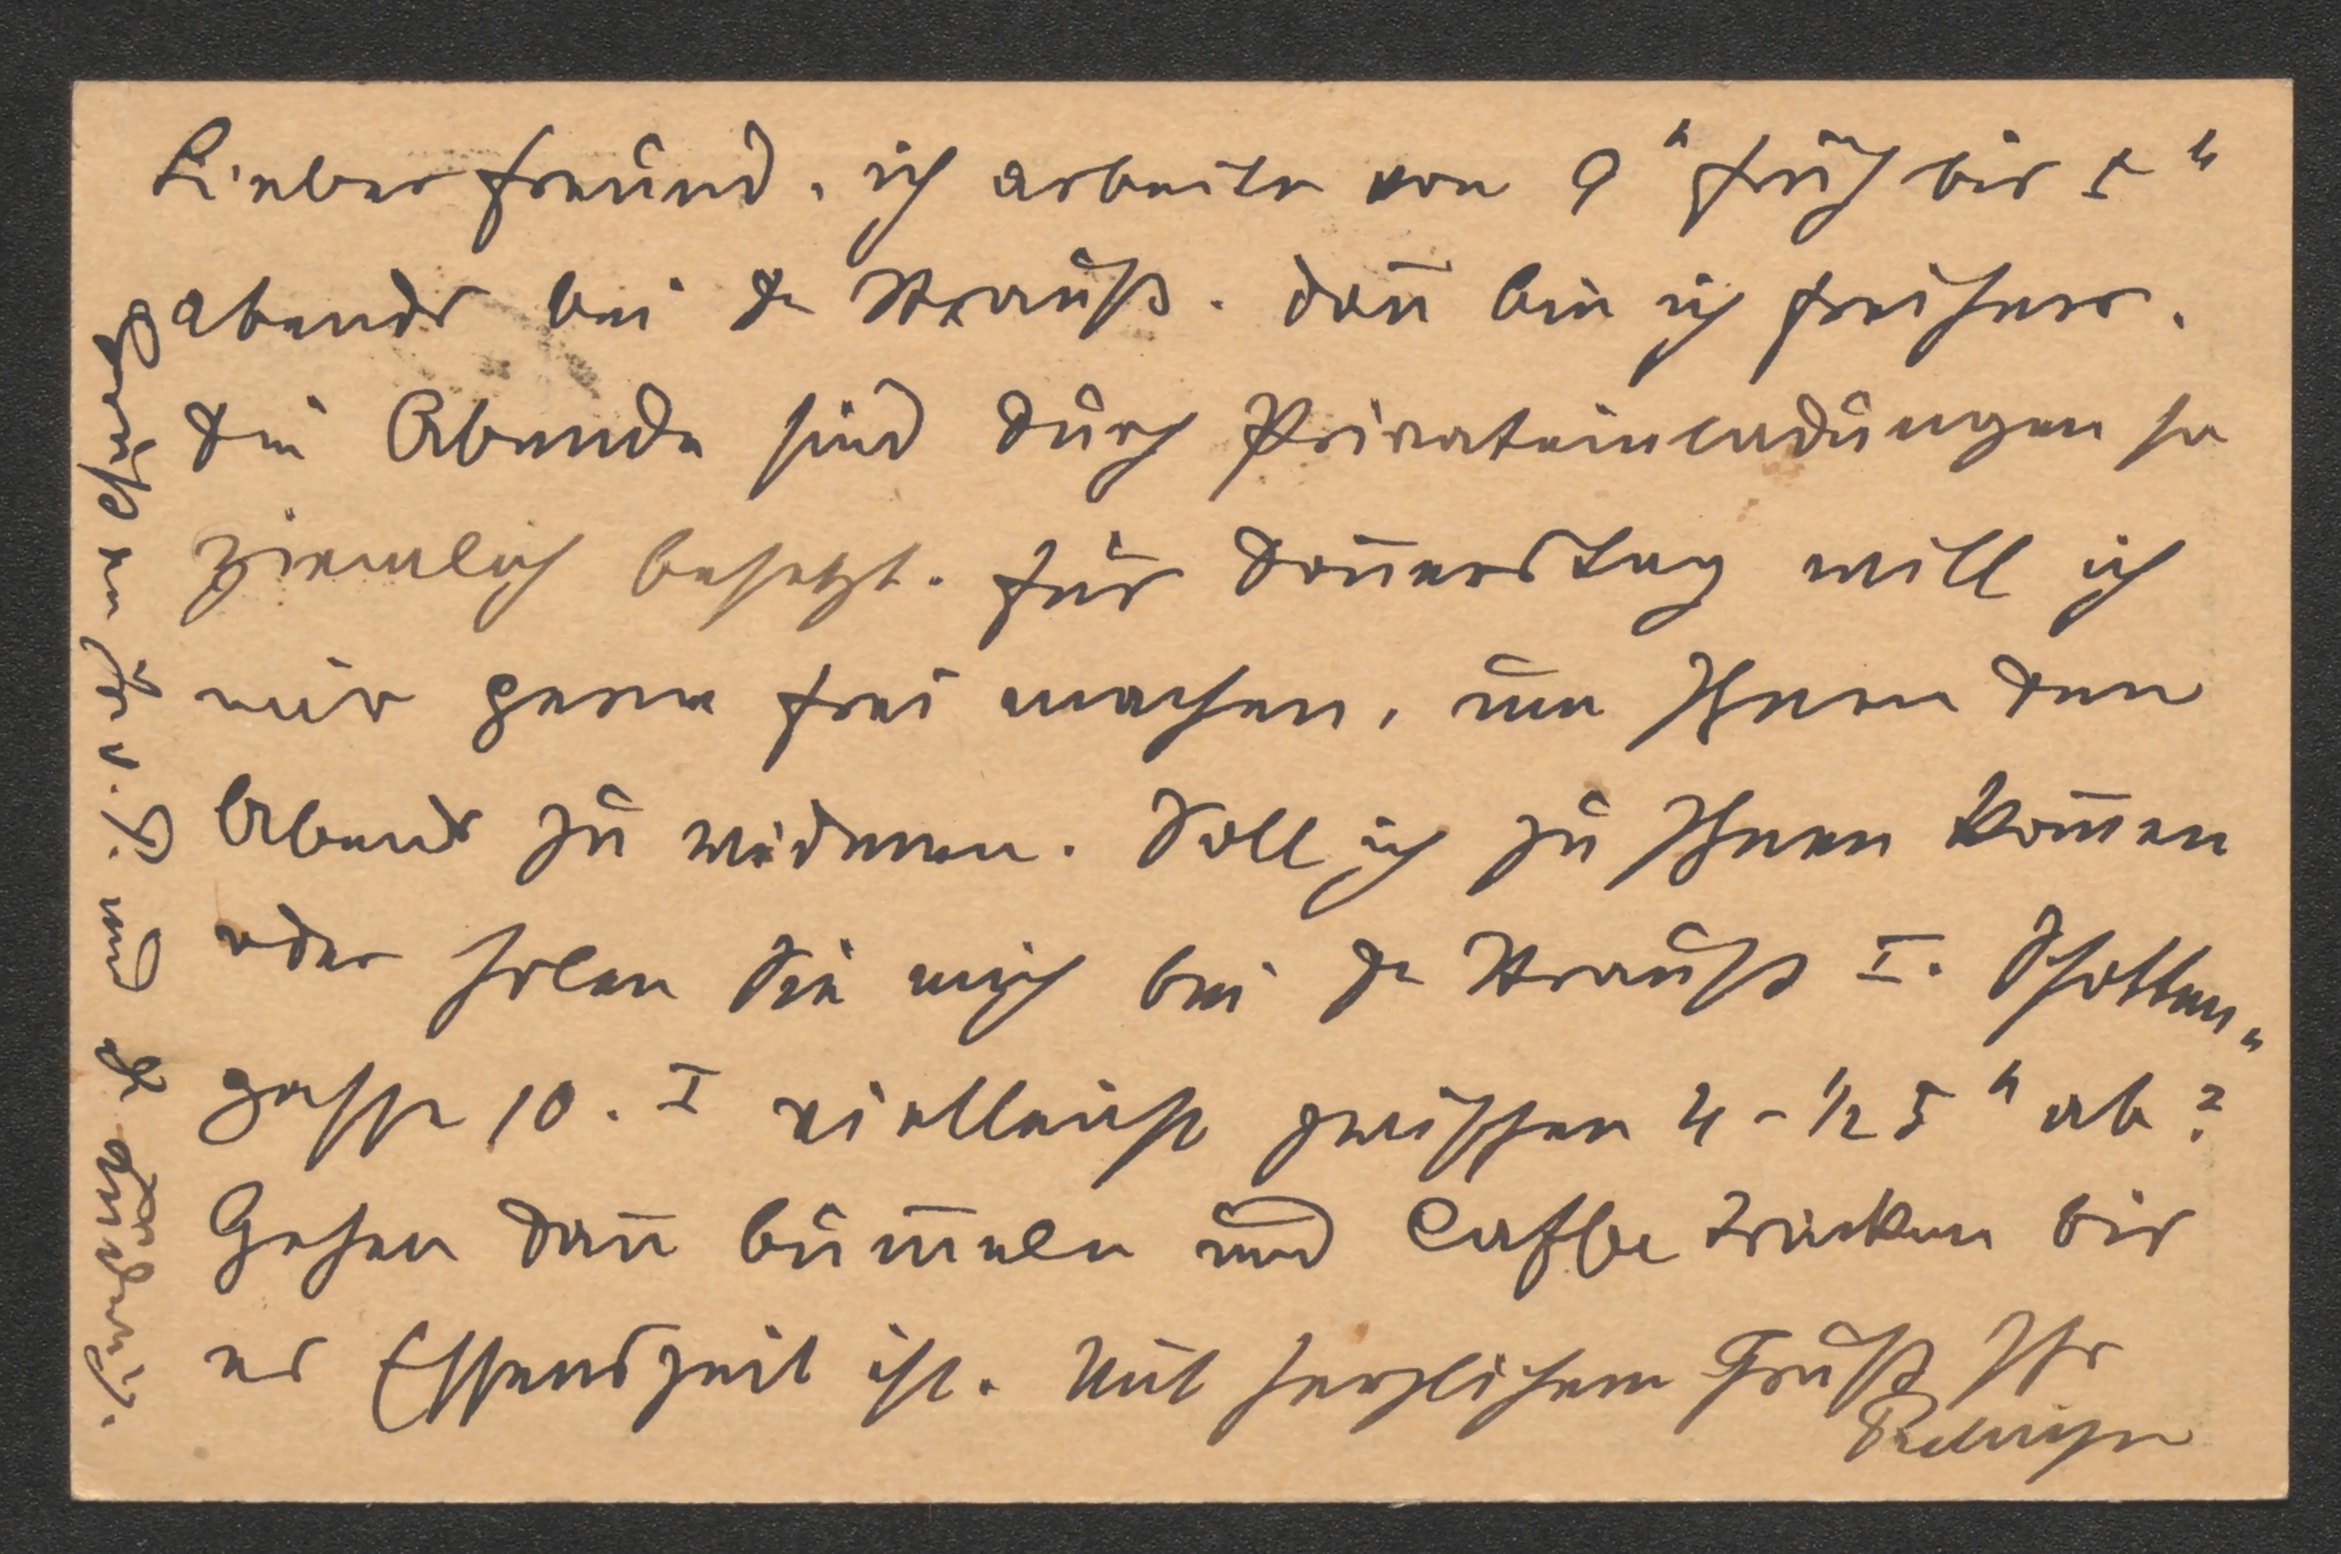 Lieber Freund, ich arbeite von 9 h früh bis 5 h
abends bei Dr Strauß. Dañ bin ich freiherr.
Die Abende sind durch Privateinladungen so
ziemlich besetzt. Für Doñerstag will ich
mir gerne frei machen, um Ihnen den
Abend zu widmen. Soll ich zu Ihnen kom̄en
oder holen Sie mich bei Dr Strauß I. Schotten„
gasse 10. I vielleicht zwischen 4 - ½ 5 h ab?
Gehen dañ bum̄eln und Caffee trinken bis
es Essenszeit ist. Mit herzlichem Gruß Ihr
Grüße an Fr. v. G. und Dr